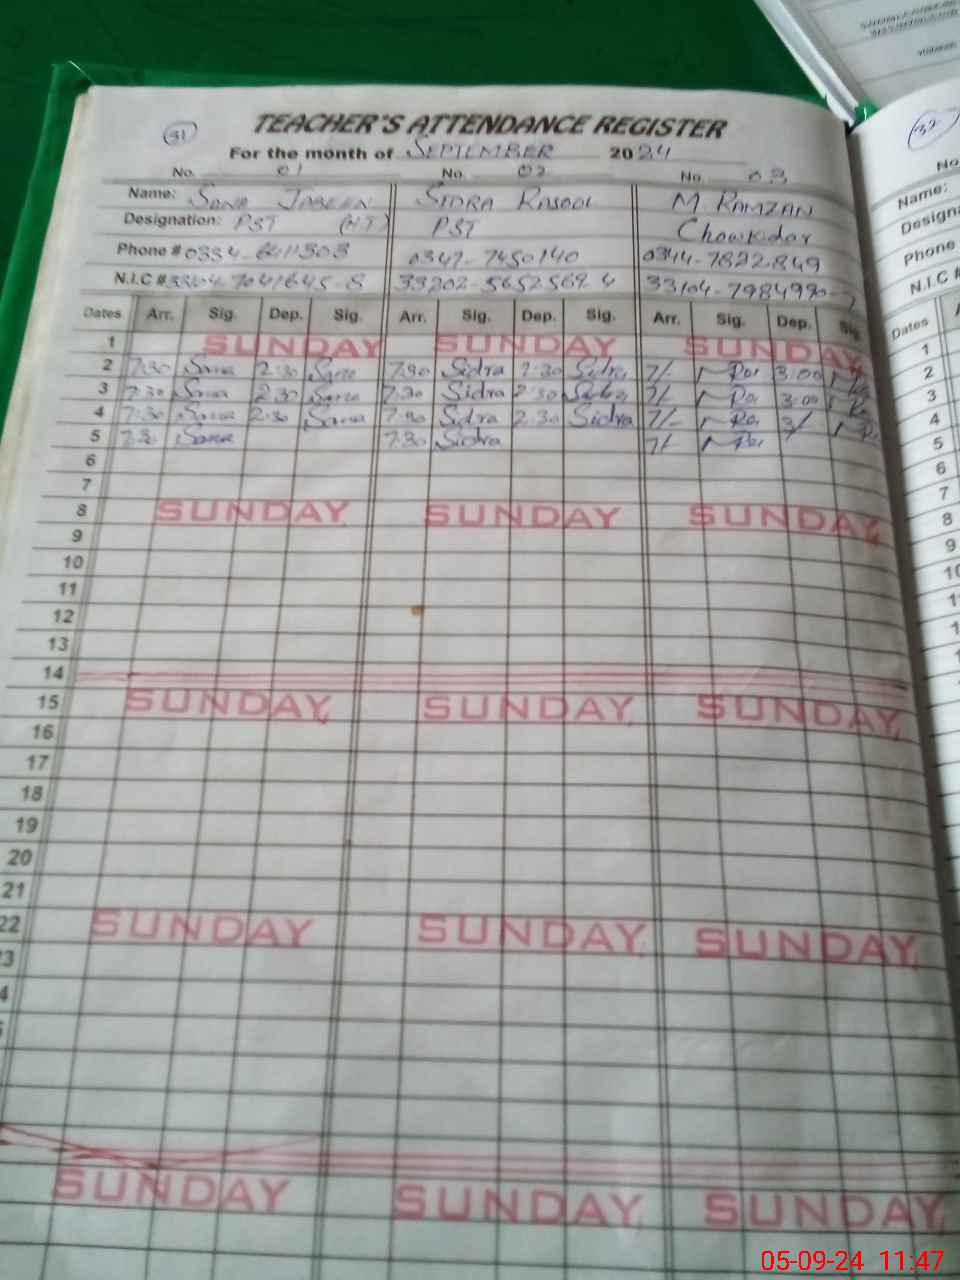 31
TEACHER'S ATTENDANCE REGISTER
For the month of SEPTEMBER 2024
No. 01 No. 02 No. 03
Name: SANA JABEEN SIDRA RASOOL M RAMZAN
Designation: PST (HT) PST Chowkidar
Phone # 0334-6411303 0347-7450140 0344-7822849
N.I.C # 33104-7041645-8 33202-5652569-4 33104-7984990-7
Dates Arr. Sig. Dep. Sig. Arr. Sig. Dep. Sig. Arr. Sig. Dep. Sig
1 SUNDAY SUNDAY SUNDAY
2 7:30 Sana 2:30 Sana 7:30 Sidra 2:30 Sidra 7/- 3:00
3 7:30 Sana 2:30 Sana 7:30 Sidra 2:30 Sidra 7/- 3:00
4 7:30 Sana 2:30 Sana 7:30 Sidra 2:30 Sidra 7/- 3/
5 7:30 Sana 7:30 Sidra 7/-
6
7
8 SUNDAY SUNDAY SUNDAY
9
10
11
12
13
14
15 SUNDAY SUNDAY SUNDAY
16
17
18
19
20
21
22 SUNDAY SUNDAY SUNDAY
3
4
SUNDAY SUNDAY SUNDAY
32
No.
Name:
Designa
Phone
N.I.C #
Dates
1
2
3
4
5
6
7
8
9
10
05-09-24 11:47